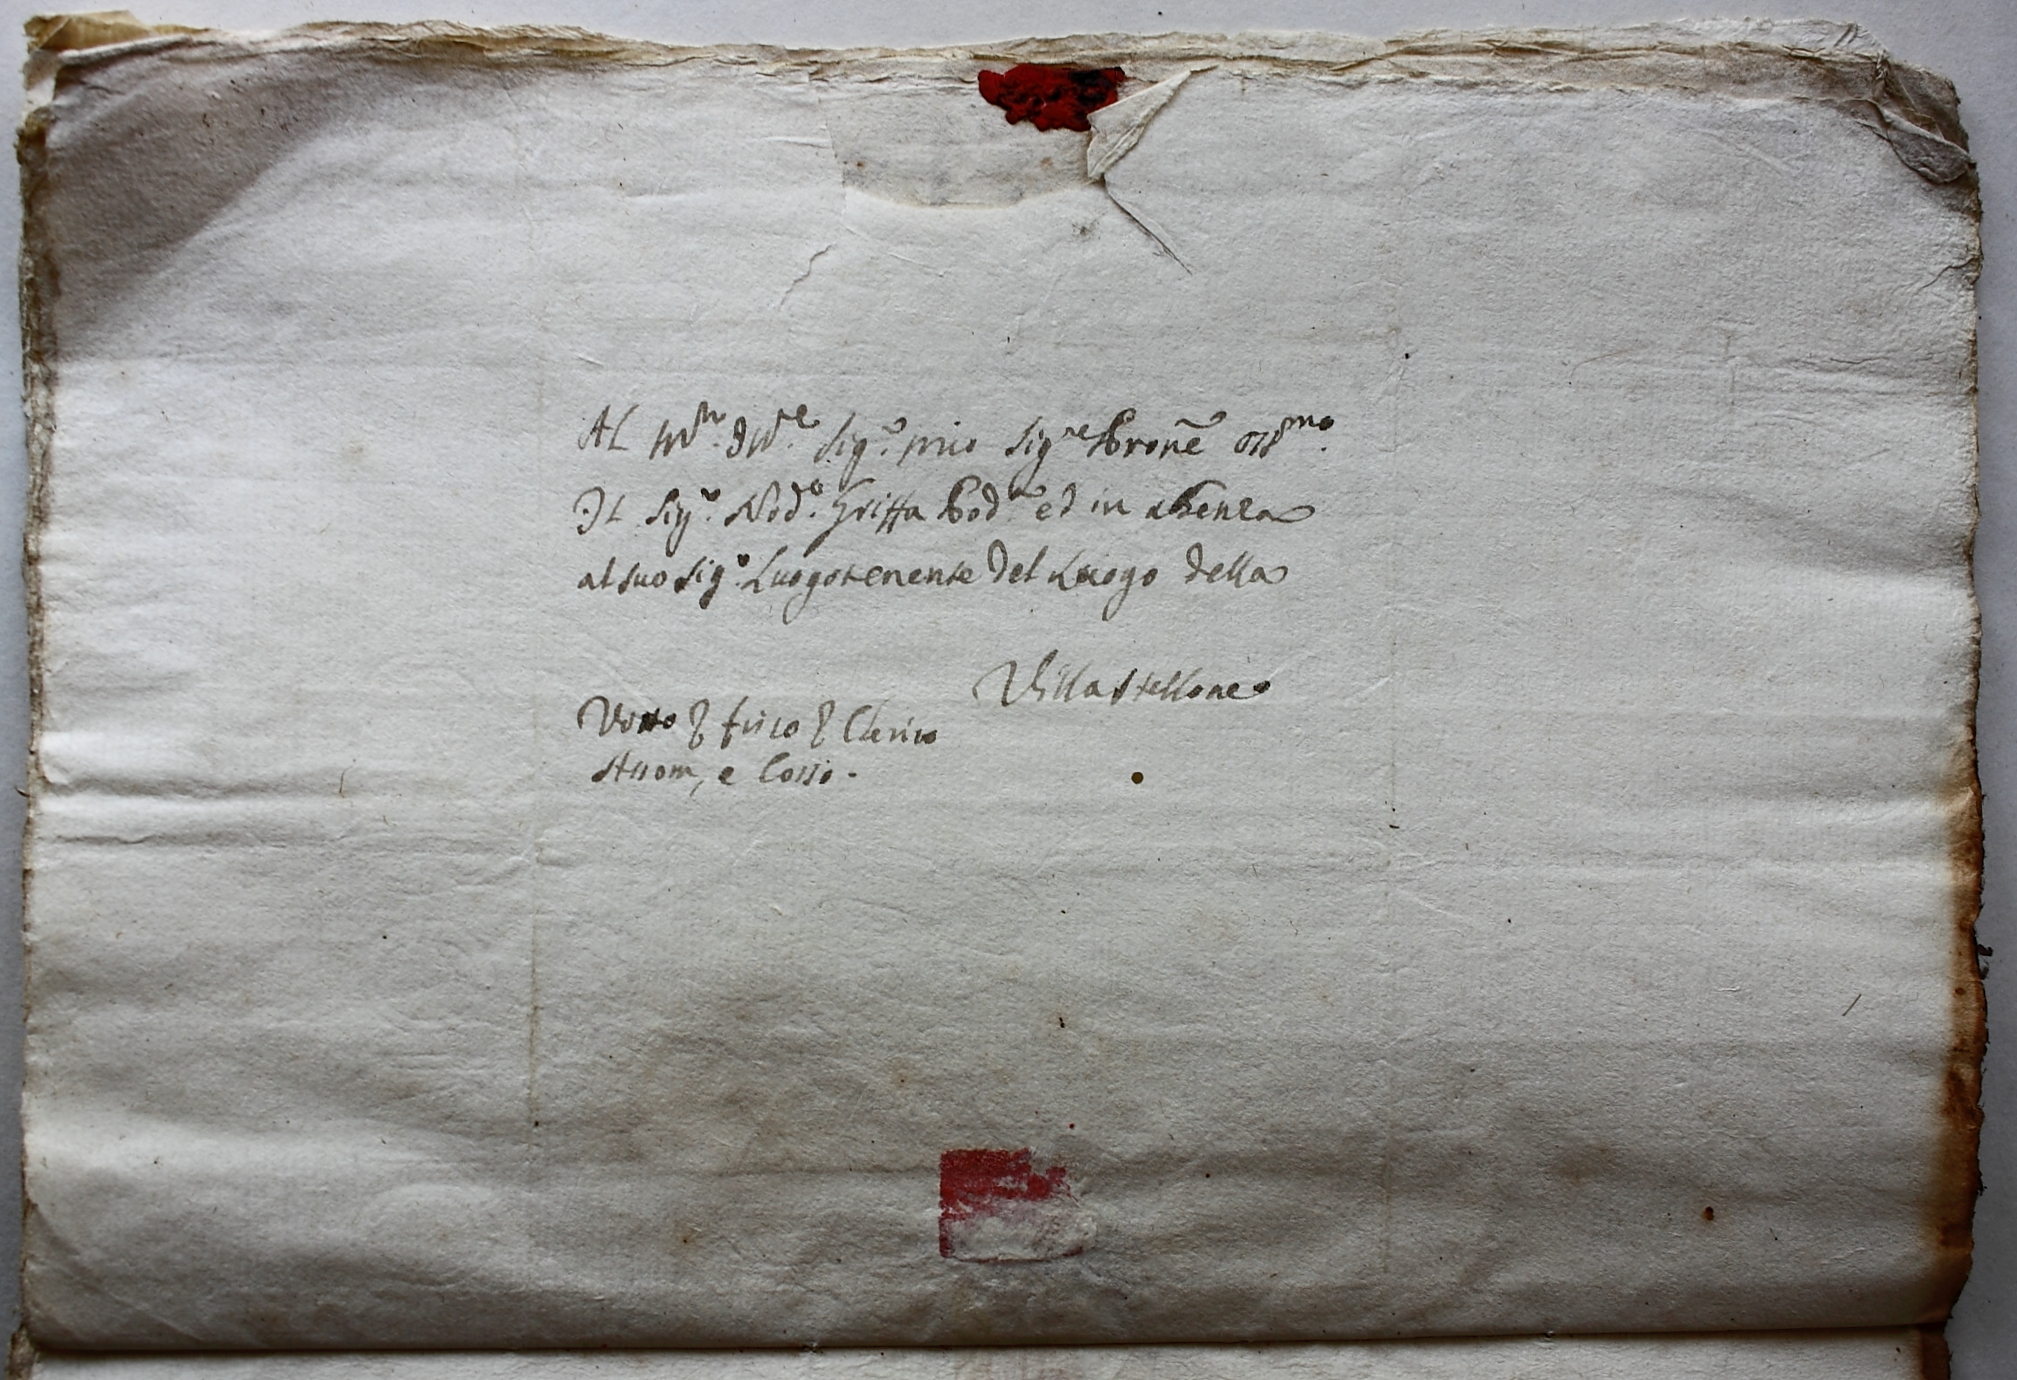 Al M.to Ill.re Sig.r mio Sig.re Pron.e oss.mo
Il Sig.r Nod.o Griffa Pod.à ed in absenza
al suo Sig.r Luogotenente del Luogo della
Villastellone
fisco
e